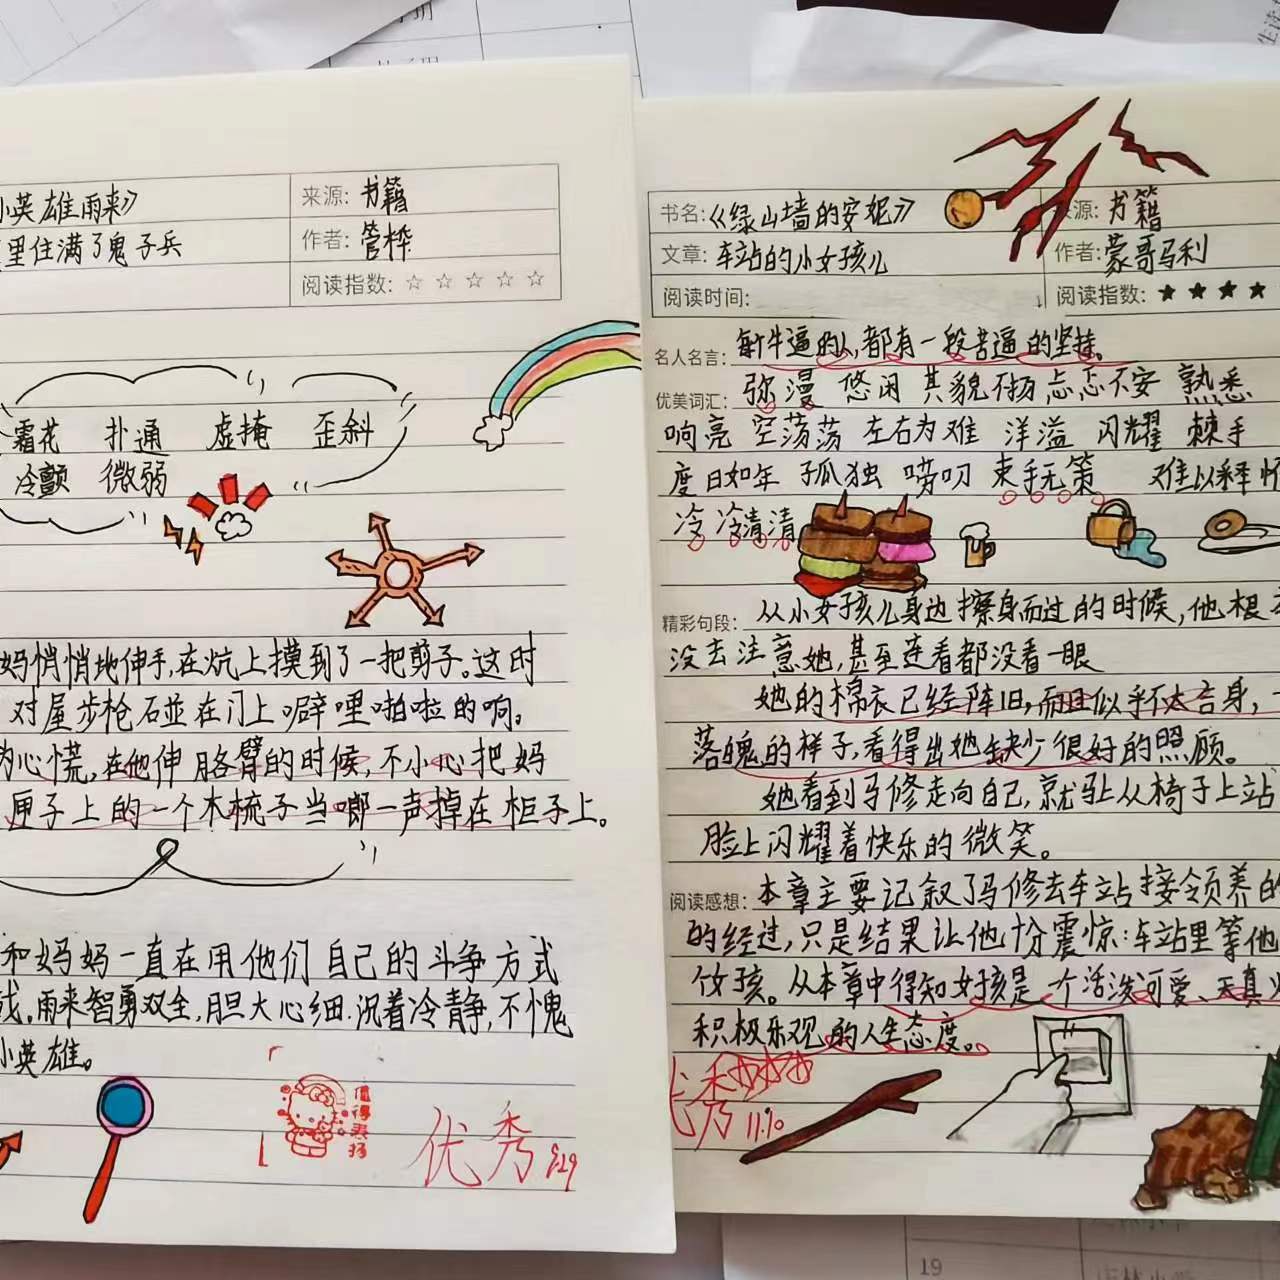 小英雄雨来》
来源: 书籍
里住满了鬼子兵
作者: 管桦
阅读指数: ☆ ☆ ☆ ☆ ☆
霜花 扑通 虚掩 歪斜
冷颤 微弱
妈悄悄地伸手,在炕上摸到了一把剪子。这时
对屋步枪碰在门上噼哩啪啦的响。
心慌,在他伸胳臂的时候,不小心把妈
匣子上的一个木梳子当啷一声掉在柜子上。
和妈妈一直在用他们自己的斗争方式
战。雨来智勇双全,胆大心细.沉着冷静,不愧
小英雄。
值得表扬
优秀 9.29
书名:《绿山墙的安妮》
源: 书籍
文章: 车站的小女孩儿
作者: 蒙哥马利
阅读时间:
阅读指数: ★ ★ ★ ★
名人名言: 每个牛逼的人,都有一段苦逼的坚持。
优美词汇: 弥漫 悠闲 其貌不扬 忐忑不安 熟悉
响亮 空荡荡 左右为难 洋溢 闪耀 棘手
度日如年 孤独 唠叨 束手无策 难以释怀
冷冷清清
精彩句段: 从小女孩儿身边擦身而过的时候,他根
没去注意她,甚至连看都没看一眼
她的棉衣已经陈旧,而且似乎不太合身,一
落魄的样子,看得出她缺少很好的照顾。
她看到马修走向自己,就马上从椅子上站
脸上闪耀着快乐的微笑。
阅读感想: 本章主要记叙了马修去车站接领养的
的经过,只是结果让他十分震惊:车站里等他
女孩。从本章中得知女孩是一个活泼可爱、天真
积极乐观的人生态度。
优秀
11.10
19